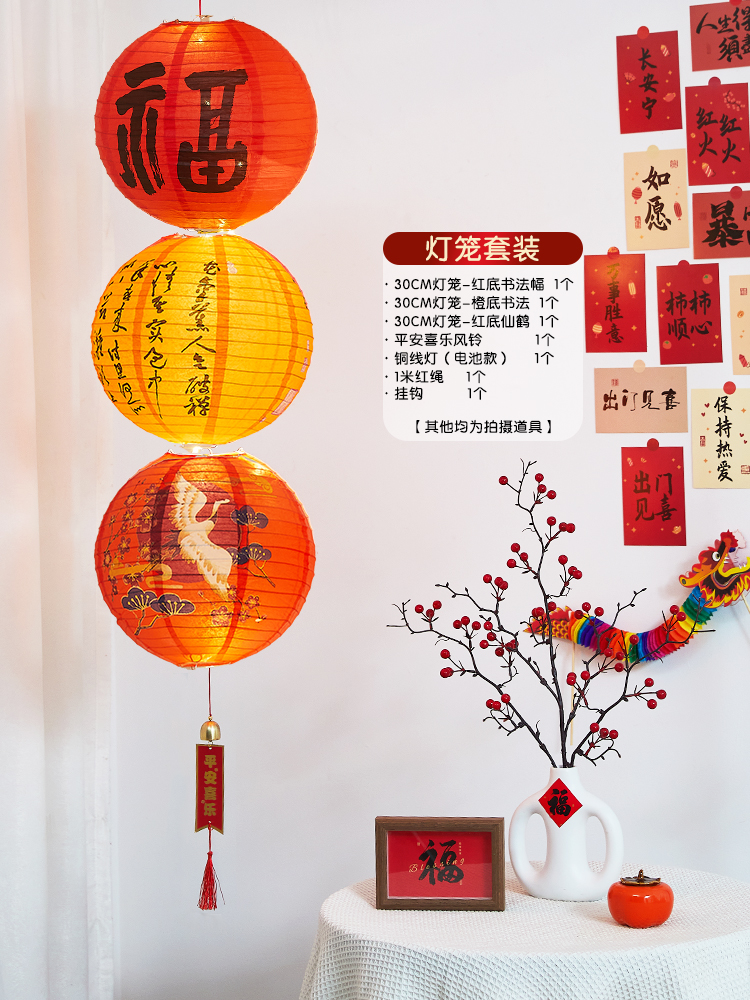 福
灯笼套装
· 30CM灯笼-红底书法幅 1个
· 30CM灯笼-橙底书法 1个
· 30CM灯笼-红底仙鹤 1个
· 平安喜乐风铃 1个
· 铜线灯（电池款） 1个
· 1米红绳 1个
· 挂钩 1个
【 其他均为拍摄道具 】
人生得
须
长安宁
红火
红火
如愿
暴
万事胜意
柿柿
顺心
出门见喜
保持热爱
出门
见喜
平安喜乐
福
Blessing
福